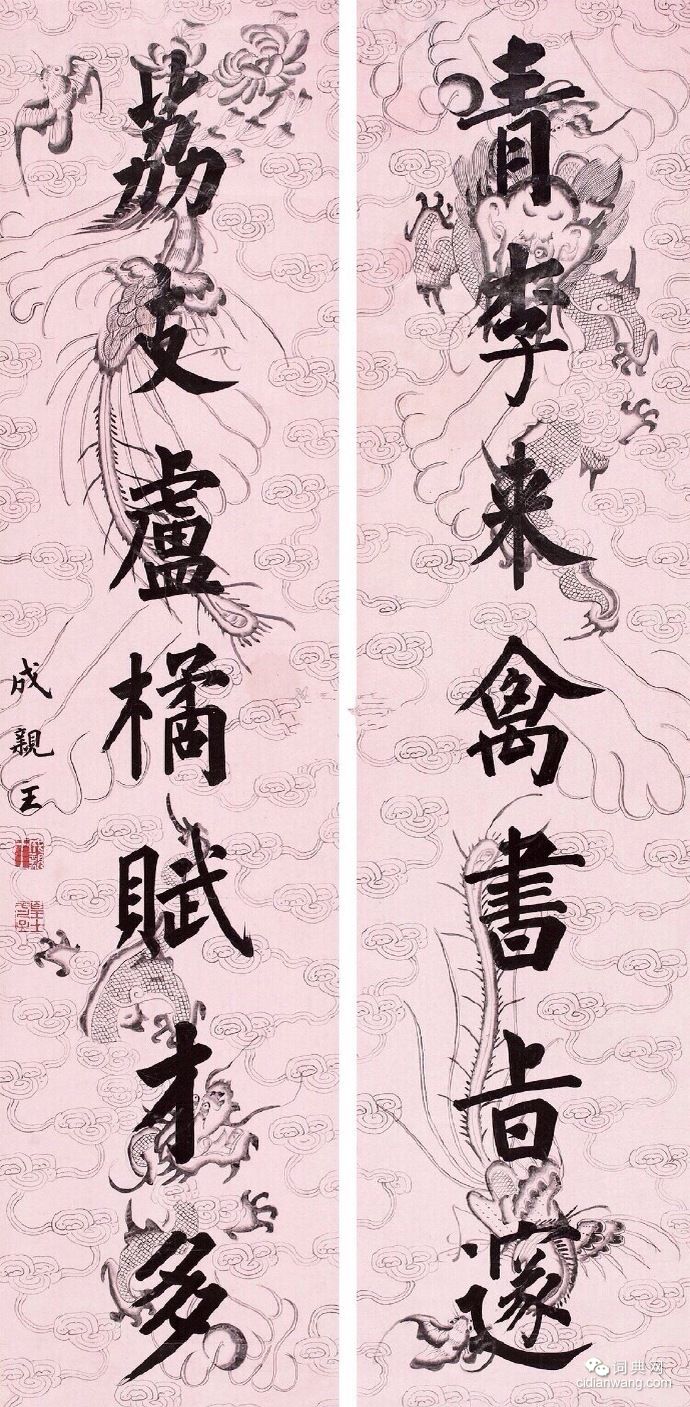 青李来禽書旨邃
荔支盧橘賦才多
成親王
词典网
cidianwang.com